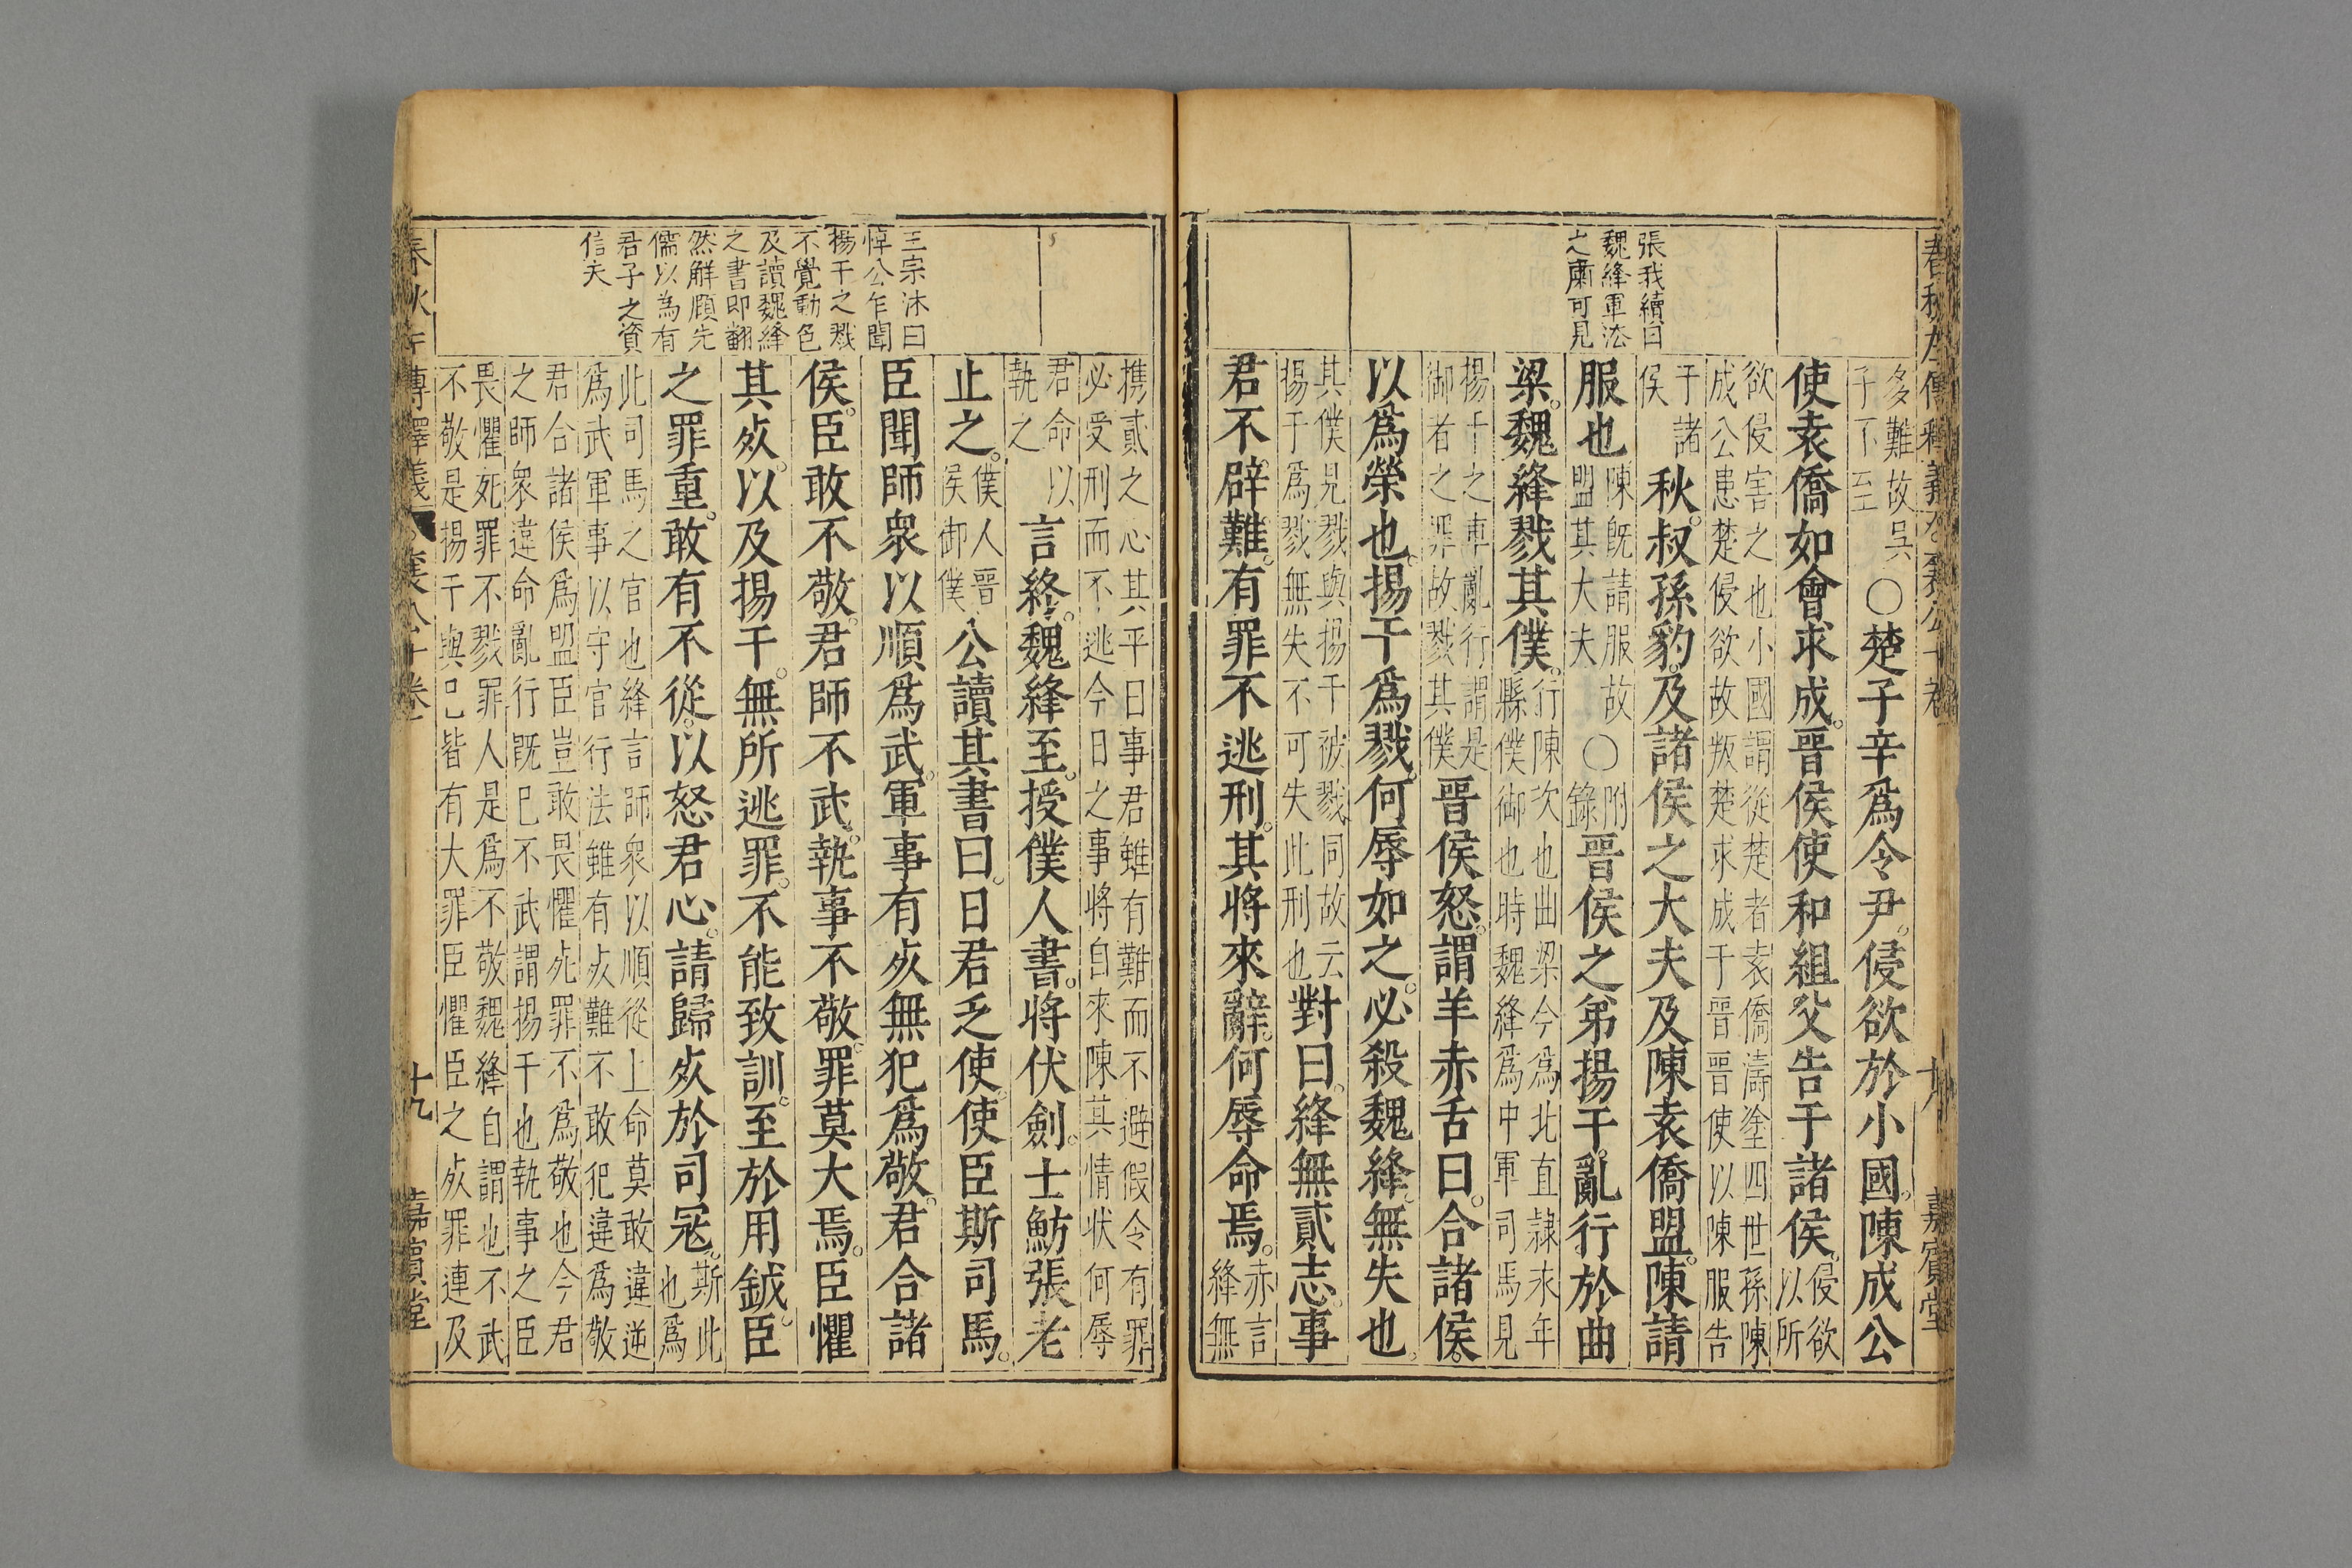 張我續曰
魏絳軍法
之肅可見
多難故吳
子不至
○楚子辛爲令尹侵欲於小國陳成公
使袁僑如會求成晉侯使和組父告于諸侯
侵欲
以所
欲侵害之也小國謂從楚者袁僑濤塗四世孫陳
成公患楚侵欲故叛楚求成于晉晉使以陳服告
于諸
侯
秋叔孫豹及諸侯之大夫及陳袁僑盟陳請
服也
陳旣請服故
盟其大夫
○
附
錄
晉侯之弟揚干亂行於曲
梁魏絳戮其僕
行陳次也曲梁今爲北直隷永年
縣僕御也時魏絳爲中軍司馬見
揚干之車亂行謂是
御者之罪故戮其僕
晉侯怒謂羊赤舌曰合諸侯
以爲榮也揚干爲戮何辱如之必殺魏絳無失也
其僕見戮與揚干被戮同故云
揚干爲戮無失不可失此刑也
對曰絳無貳志事
君不辟難有罪不逃刑其將來辭何辱命焉
赤言
絳無
嘉賓堂
王宗沐曰
悼公乍聞
揚干之戮
不覺動色
及讀魏絳
之書即翻
然解頤先
儒以為有
君子之資
信夫
携貳之心其平日事君雖有難而不避假令有罪
必受刑而不逃今日之事將自來陳其情狀何辱
君命以
執之
言終魏絳至授僕人書將伏劍士魴張老
止之
僕人晉
侯御僕
公讀其書曰日君乏使使臣斯司馬
臣聞師衆以順爲武軍事有死無犯爲敬君合諸
侯臣敢不敬君師不武執事不敬罪莫大焉臣懼
其死以及揚干無所逃罪不能致訓至於用鉞臣
之罪重敢有不從以怒君心請歸死於司寇
斯此
也爲
此司馬之官也絳言師衆以順從上命莫敢違逆
爲武軍事以守官行法雖有死難不敢犯違爲敬
君合諸侯爲盟臣豈敢畏懼死罪不爲敬也今君
之師衆違命亂行旣已不武謂揚干也執事之臣
畏懼死罪不戮罪人是爲不敬魏絳自謂也不武
不敬是揚干與己皆有大罪臣懼臣之死罪連及
十九
嘉賓堂